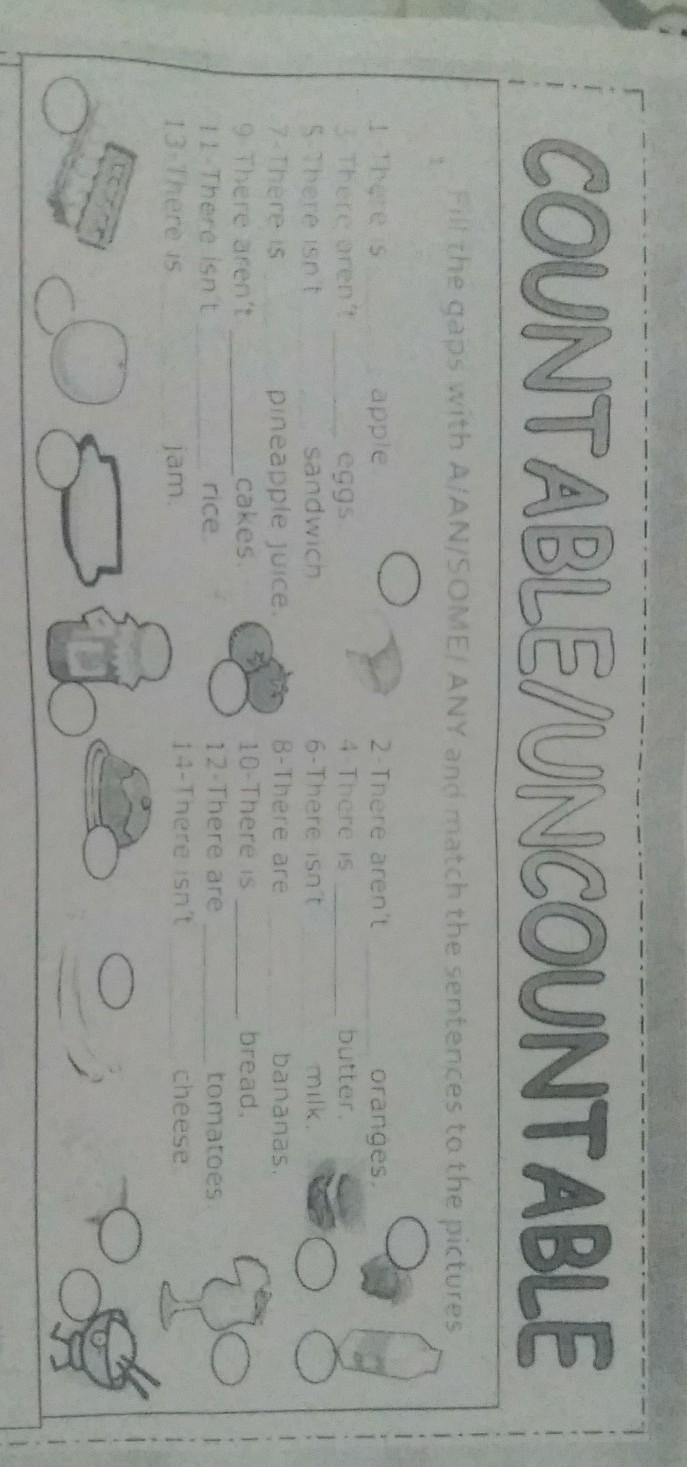 COUNTABLE/UNCOUNTABLE
Fill the gaps with A/AN/SOME/ ANY and match the sentences to the pictures
1.
1-There is ______ apple. 2-There aren't ______ oranges.
3-There aren't ______ eggs. 4-There is ______ butter.
5-There isn't ______ sandwich. 6-There isn't ______ milk.
7-There is ______ pineapple juice. 8-There are ______ bananas.
9-There aren't ______ cakes. 10-There is ______ bread.
11-There isn't ______ rice. 12-There are ______ tomatoes.
13-There is ______ jam. 14-There isn't ______ cheese